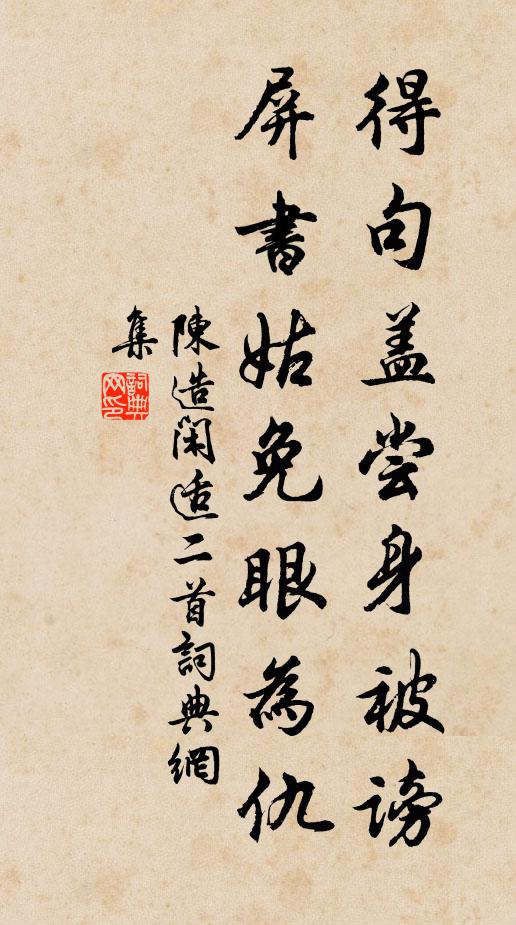 得句盖尝身被谤
屏書姑免眼為仇
陳造閑适二首詞典網
集
詞典網印